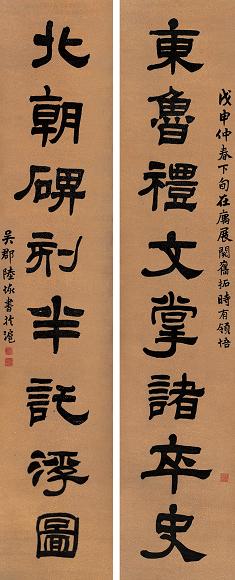 東魯禮文掌諸卒史
戊申仲春下旬在廣展閱舊拓時有領悟
北朝碑刻半託浮圖
吳郡陸恢書於滬